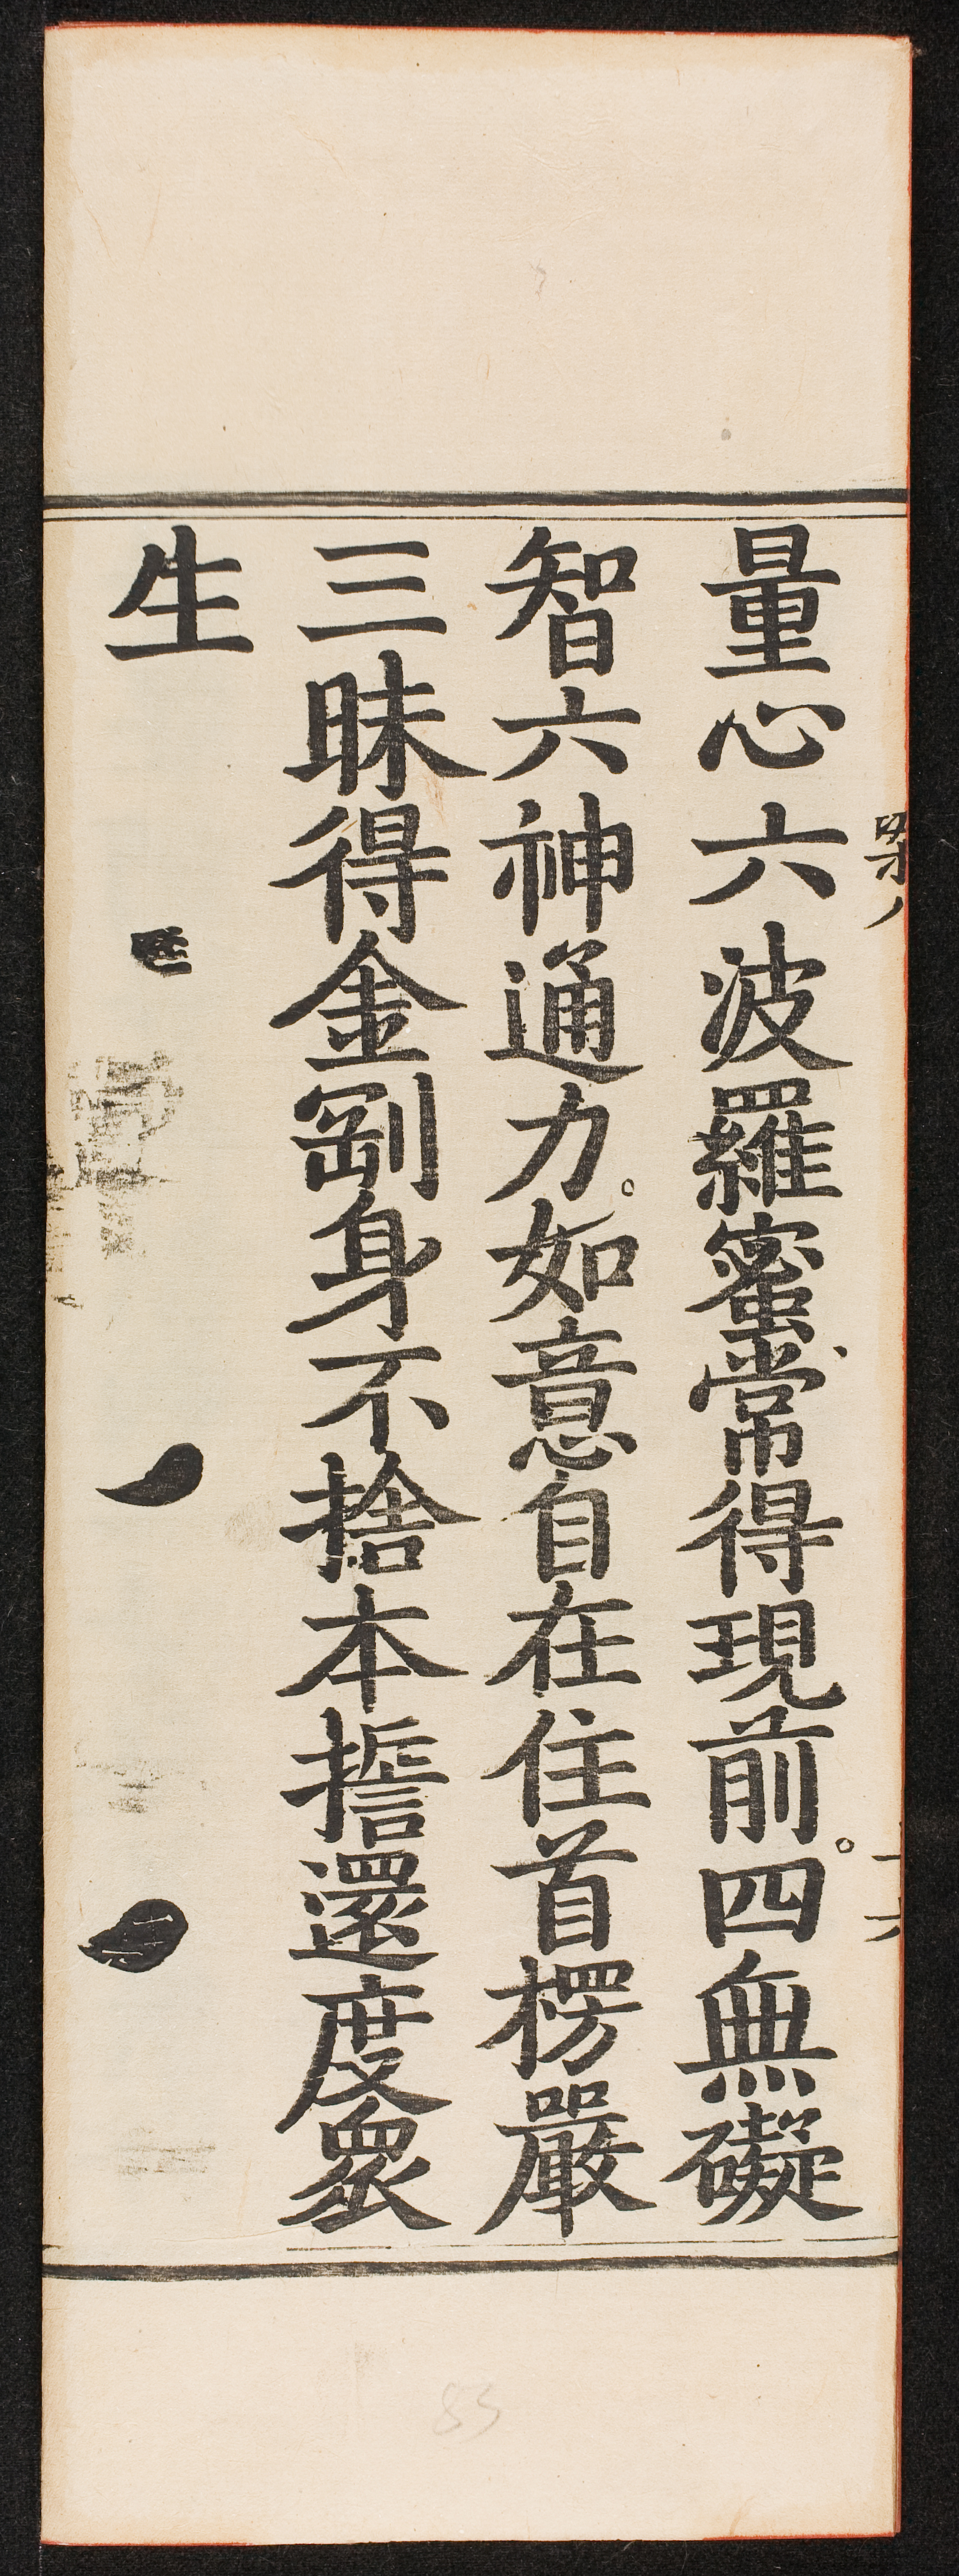 量心六波羅蜜常得現前。四無礙
智六神通力。如意自在住首楞嚴
三昧得金剛身不捨本誓還度眾
生
83